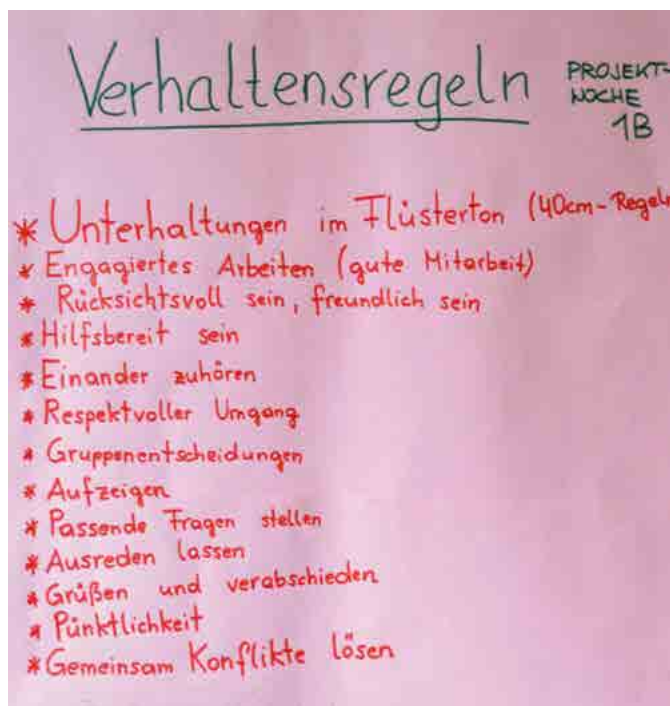 Verhaltensregeln
PROJEKT-
WOCHE
1B
* Unterhaltungen im Flüsterton (40cm-Regel)
* Engagiertes Arbeiten (gute Mitarbeit)
* Rücksichtsvoll sein, freundlich sein
* Hilfsbereit sein
* Einander zuhören
* Respektvoller Umgang
* Gruppenentscheidungen
* Aufzeigen
* Passende Fragen stellen
* Ausreden lassen
* Grüßen und verabschieden
* Pünktlichkeit
* Gemeinsam Konflikte lösen